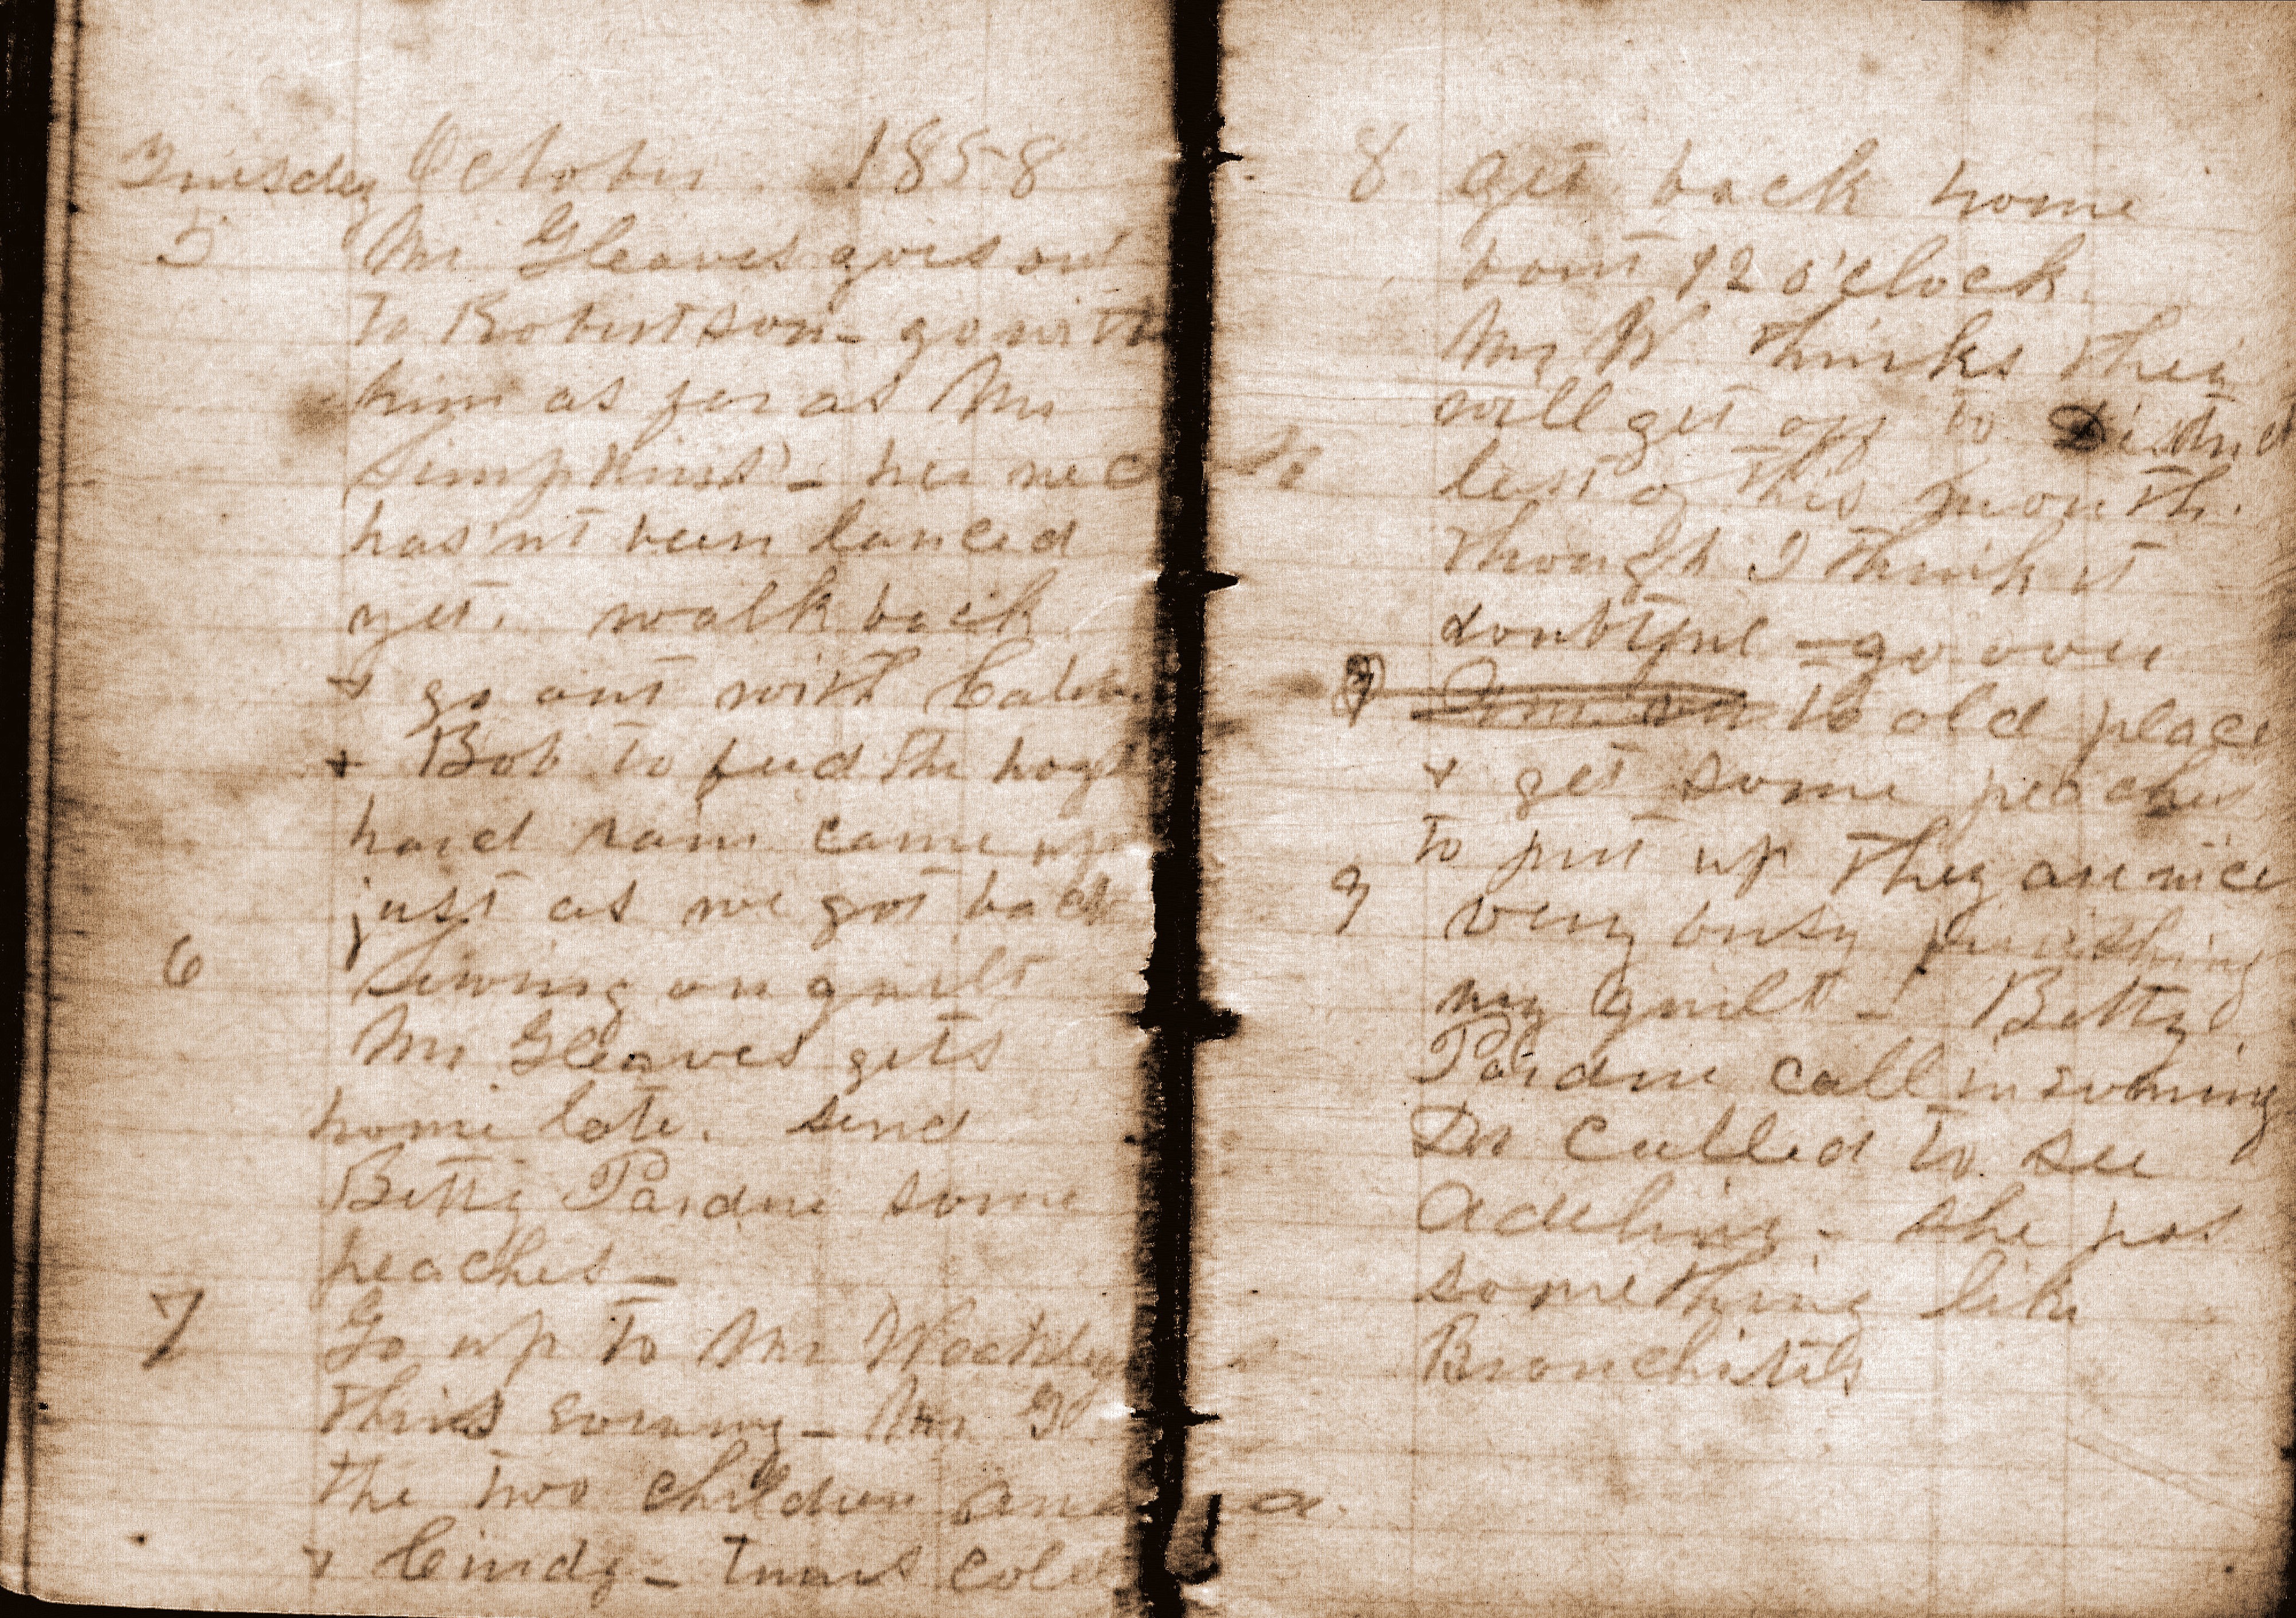 Tuesday October. 1858
5 Mr Gleaves goes out
to Robertson - go with
him as far as Mr
Simpkins' - her neck
has'nt been lanced
yet. walk back
+ go out with
+ Bob to feed the hogs
hard rain came up
just as we got back
6 Sewing on quilt
Mr Gleaves gets
home late. send
Betty Pardue some
peaches -
7 Go up to Mr
this evening - Mr G
the two children
+ Cindy - turns cold
8 get back home
bout 12 o'clock.
Mr W thinks they
will get off to District
last of this month.
though I think it
doubtful - go over
to old place
+ get some peaches
to put up they are nice
9 very busy finishing
my quilt - Betty
Pardue call in evening
Dr called to see
Adeline - she has
something like
Bronchitis